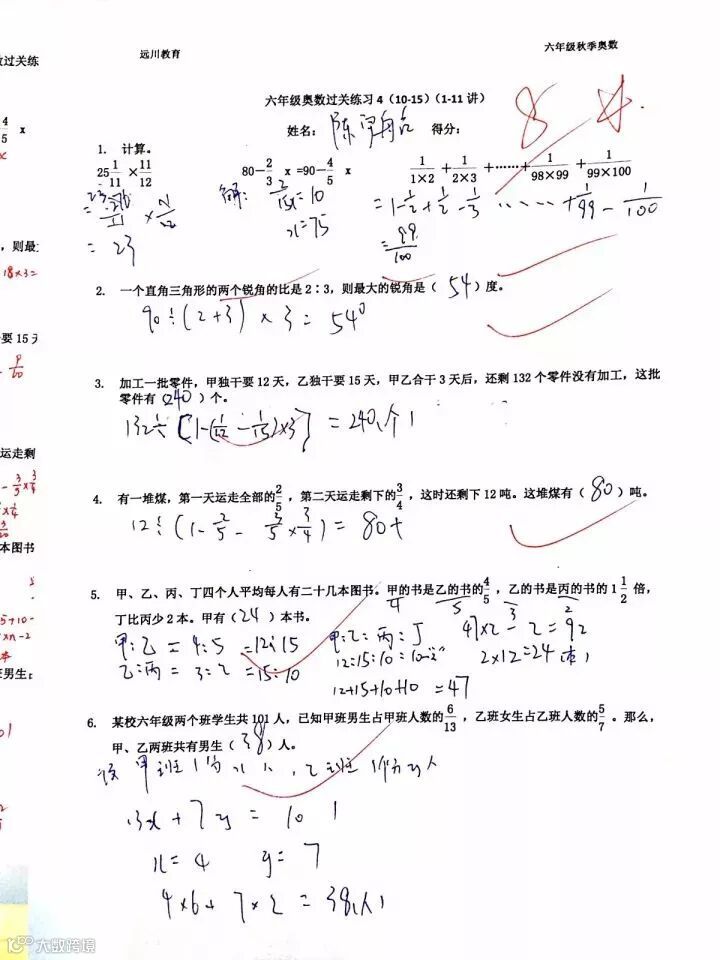 远川教育
六年级秋季奥数
六年级奥数过关练习4（10-15）（1-11讲）
姓名： 得分：
1. 计算。
25 1/11 × 11/12
80－2/3 x =90－4/5 x
1/(1×2) + 1/(2×3) +……+ 1/(98×99) + 1/(99×100)
× 11/12
= 23
解： 2/15 x = 10
x = 75
= 1 - 1/2 + 1/2 - 1/3 …… + 1/99 - 1/100
= 99/100
2. 一个直角三角形的两个锐角的比是2：3，则最大的锐角是（ 54 ）度。
90 ÷ (2+3) × 3 = 54°
3. 加工一批零件，甲独干要12天，乙独干要15天，甲乙合干3天后，还剩132个零件没有加工，这批
零件有（240）个。
132 ÷ [1-(1/12 - 1/15)×3] = 240(个)
4. 有一堆煤，第一天运走全部的2/5，第二天运走剩下的3/4，这时还剩下12吨。这堆煤有（ 80 ）吨。
12 ÷ (1 - 2/5 - 3/5 × 3/4) = 80t
5. 甲、乙、丙、丁四个人平均每人有二十几本图书。甲的书是乙的书的4/5，乙的书是丙的书的1 1/2倍，
丁比丙少2本。甲有（ 24 ）本书。
4 5 3 2
甲:乙 = 4:5 = 12:15
乙:丙 = 3:2 = 15:10
甲:乙:丙:丁
12:15:10:10-"2"
12+15+10+10 = 47
47×2 - 2 = 92
2×12=24(本)
6. 某校六年级两个班学生共101人，已知甲班男生占甲班人数的6/13，乙班女生占乙班人数的5/7。那么，
甲、乙两班共有男生（ 38 ）人。
设甲班1份为x人，乙班1份为y人
13x + 7y = 101
x = 4 y = 7
4×6 + 7×2 = 38(人)
大数跨境